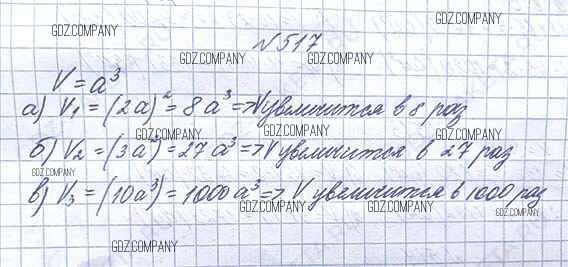 GDZ.COMPANY
GDZ.COMPANY
№517
GDZ.COMPANY GDZ.COMPANY
V=a³
GDZ.COMPANY
а) V₁ = (2a)² = 8a³ => V увеличится в 8 раз
GDZ.COMPANY GDZ.COMPANY GDZ.COMPANY
б) V₂ = (3a²) = 27a³ => V увеличится в 27 раз
GDZ.COMPANY
в) V₃ = (10a³) = 1000a³ => V увеличится в 1000 раз
GDZ.COMPANY GDZ.COMPANY GDZ.COMPANY
GDZ.COMPANY